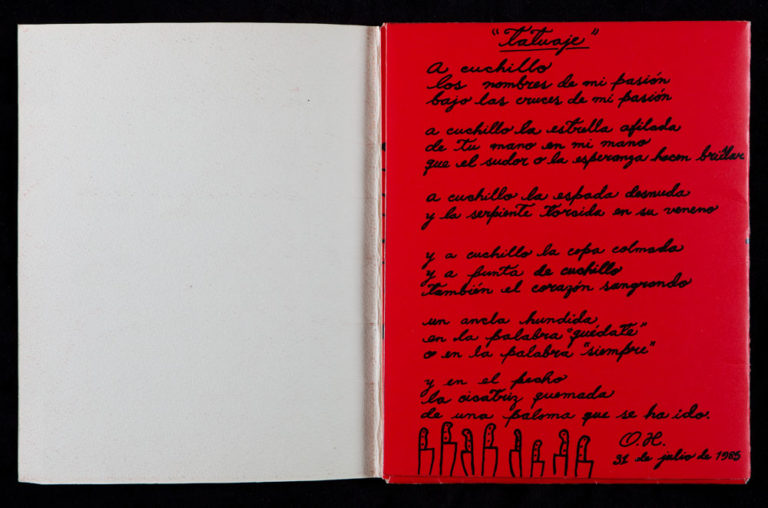 "Tatuaje"
A cuchillo
los nombres de mi pasión
bajo las cruces de mi pasión
a cuchillo la estrella afilada
de tu mano en mi mano
que el sudor o la esperanza hacen brillar
a cuchillo la espada desnuda
y la serpiente torcida en su veneno
y a cuchillo la copa colmada
y a punta de cuchillo
también el corazón sangrando
un ancla hundida
en la palabra "quédate"
o en la palabra "siempre"
y en el pecho
la cicatriz quemada
de una paloma que se ha ido.
O.H.
31 de julio de 1985